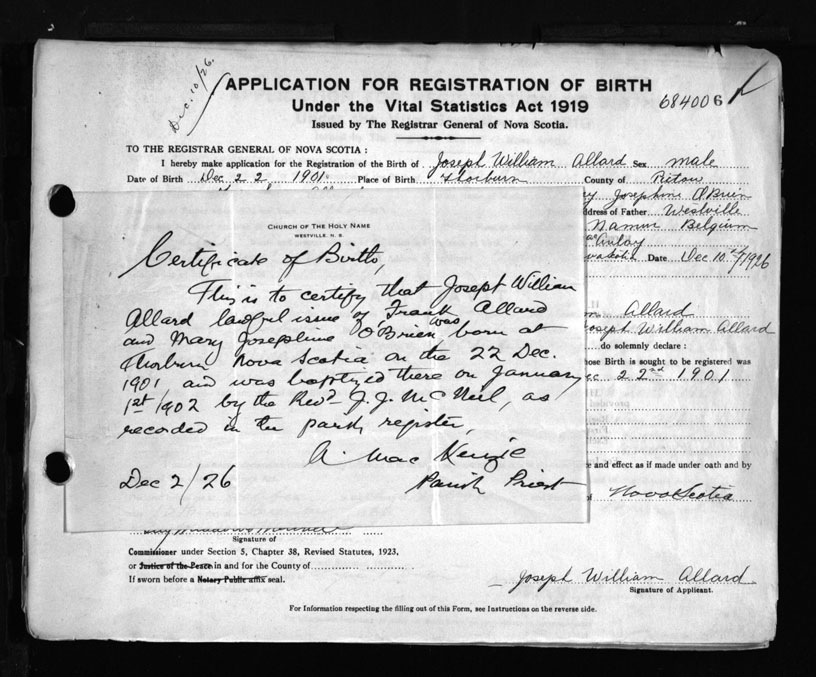 Dec. 10/26.
APPLICATION FOR REGISTRATION OF BIRTH
Under the Vital Statistics Act 1919
684006
Issued by The Registrar General of Nova Scotia.
TO THE REGISTRAR GENERAL OF NOVA SCOTIA :
I hereby make application for the Registration of the Birth of Joseph William Allard Sex male
Date of Birth Dec 22 1901 Place of Birth Thorburn County of Pictou
Josephine O'Brien
ddress of Father Westville
Namur Belgium
Date Dec 10th/1926
CHURCH OF THE HOLY NAME
WESTVILLE, N. S.
Certificate of Births,
This is to certify that Joseph William
Allard lawful issue of Frank Allard
and Mary Josephine O'Brien, was born at
Thorburn Nova Scotia on the 22 Dec.
1901, and was baptized there on January
1st 1902 by the Revd J. J. McNeil, as
recorded in the parish register,
A. MacKenzie
Dec 2/26 Parish Priest
Allard
Joseph William Allard
do solemnly declare :
hose Birth is sought to be registered was
ec 22nd 1901
e and effect as if made under oath and by
f Nova Scotia
Signature of
Commissioner under Section 5, Chapter 38, Revised Statutes, 1923,
or Justice of the Peace in and for the County of
If sworn before a Notary Public affix seal.
Joseph William Allard
Signature of Applicant.
For Information respecting the filling out of this Form, see Instructions on the reverse side.